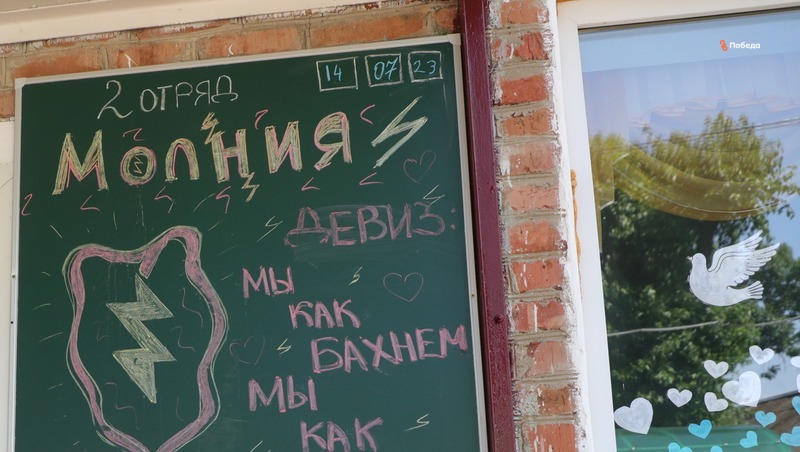 Победа
14 07 23
2 ОТРЯД
МОЛНИЯ
ДЕВИЗ:
МЫ
КАК
БАХНЕМ
МЫ
КАК